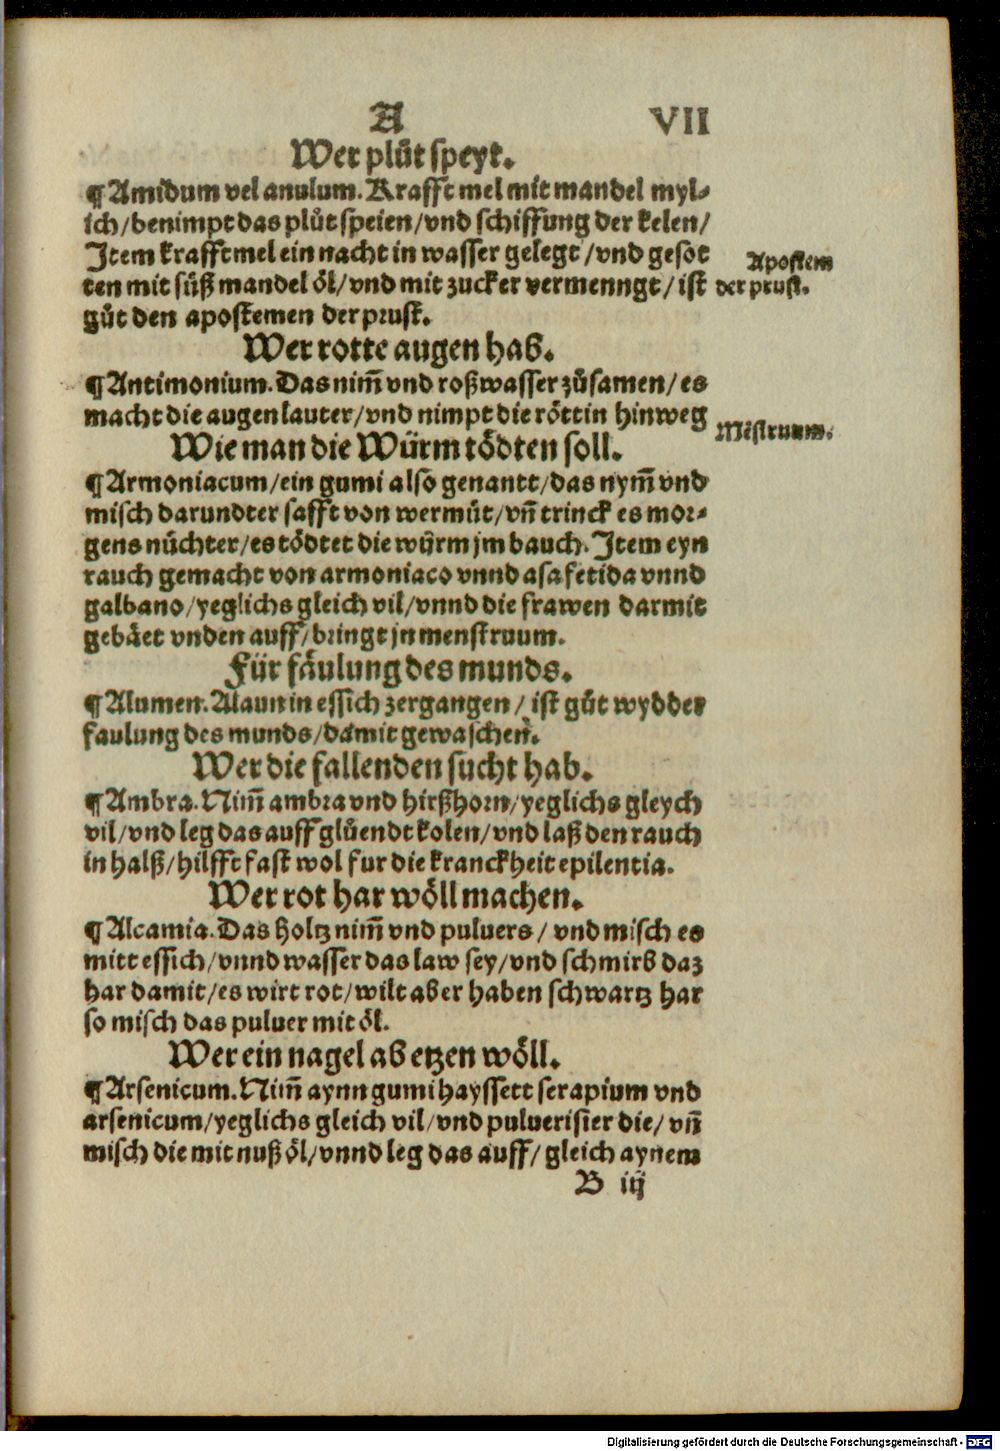 A VII
Wer plůt speyt.
¶ Amidum vel anulum. Krafft mel mit mandel myl⸗
ich/benimpt das plůt speien/vnd schiffung der kelen/
Item krafftmel ein nacht in wasser gelegt/vnd gesot
ten mit süß mandel öl/vnd mit zucker vermenngt/ist
gůt den apostemen der prust.
Apostem
der prust.
Wer rotte augen hab.
¶ Antimonium. Das nim̃ vnd roßwasser zůsamen/es
macht die augen lauter/vnd nimpt die röttin hinweg
Wie man die Würm tödten soll.
Mēstruum.
¶ Armoniacum/ein gumi also genantt/das nym̃ vnd
misch darundter safft von wermůt/vñ trinck es mor⸗
gens nüchter/es tödtet die würm jm bauch. Item eyn
rauch gemacht von armoniaco vnnd asafetida vnnd
galbano/yeglichs gleich vil/vnnd die frawen darmit
gebäet vnden auff/bringt jn menstruum.
Für fäulung des munds.
¶ Alumen. Alaun in essich zergangen/ist gůt wydder
faulung des munds/damit gewaschen.
Wer die fallenden sucht hab.
¶ Ambra. Nim̃ ambra vnd hirßhorn/yeglichs gleych
vil/vnd leg das auff glüendt kolen/vnd laß den rauch
in halß/hilfft fast wol fur die kranckheit epilentia.
Wer rot har wöll machen.
¶ Alcamia. Das holtz nim̃ vnd puluers/vnd misch es
mitt essich/vnnd wasser das law sey/vnd schmirb daz
har damit/es wirt rot/wilt aber haben schwartz har
so misch das puluer mit öl.
Wer ein nagel ab etzen wöll.
¶ Arsenicum. Nim̃ aynn gumi hayssett serapium vnd
arsenicum/yeglichs gleich vil/vnd puluerisier die/vñ
misch die mit nuß öl/vnnd leg das auff/gleich aynem
B iij
Digitalisierung gefördert durch die Deutsche Forschungsgemeinschaft - DFG